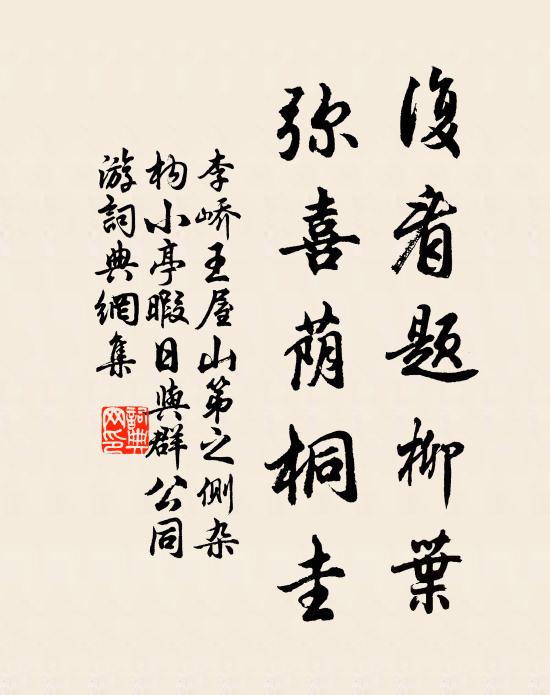 復看題柳葉
弥喜荫桐圭
李嶠王屋山第之側杂
构小亭暇日與群公同
游詞典網集
詞典網印